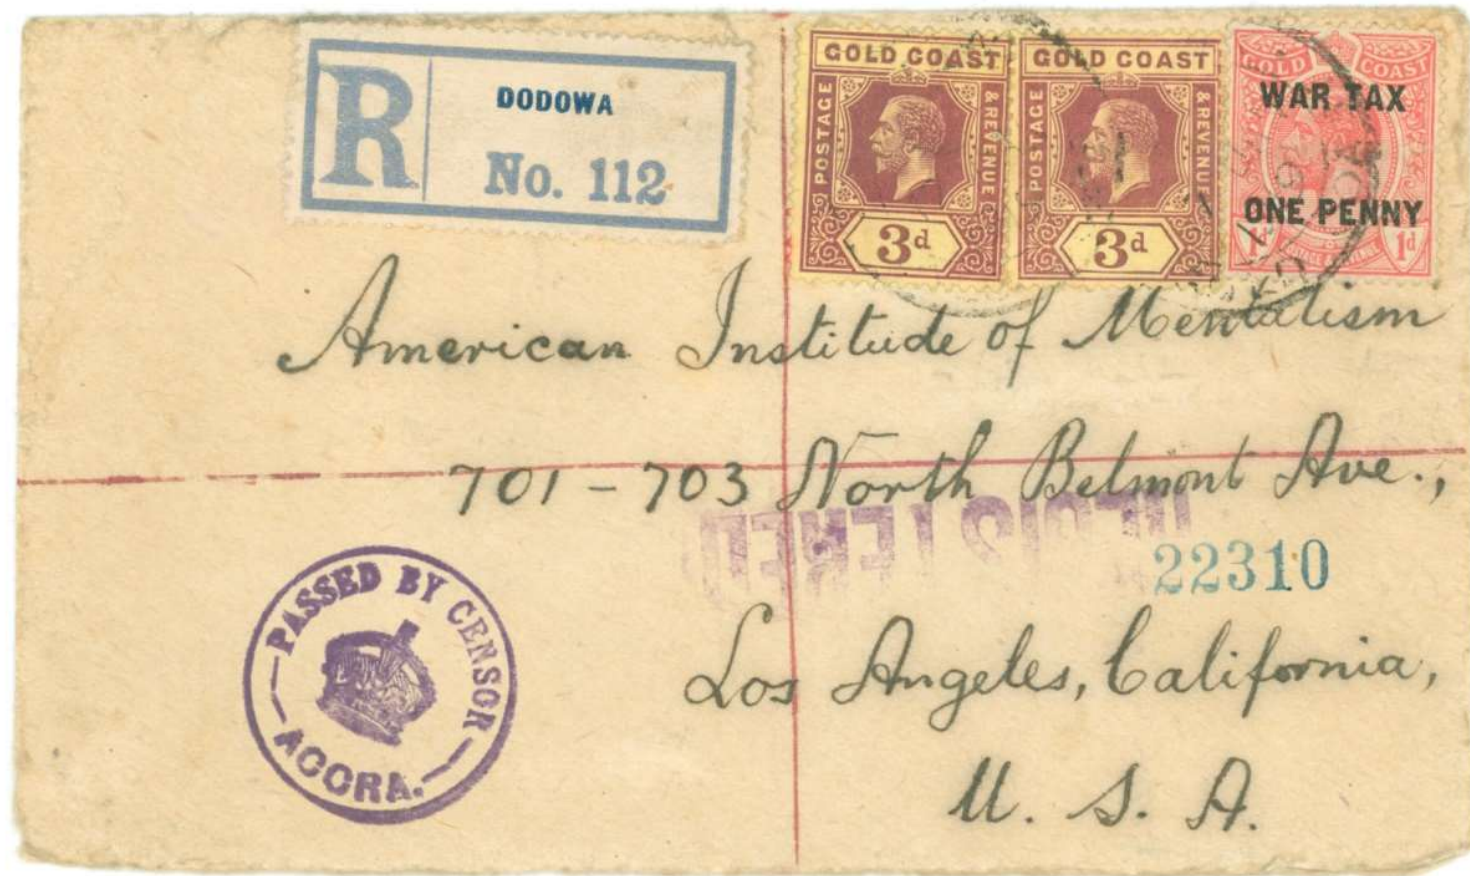 R
DODOWA
No. 112
GOLD COAST
POSTAGE
& REVENUE
3d
GOLD COAST
POSTAGE
& REVENUE
3d
GOLD COAST
WAR TAX
ONE PENNY
1d
1d
American Institute of Mentalism
701-703 North Belmont Ave.,
REGISTERED
22310
Los Angeles, California,
U. S. A.
PASSED BY CENSOR
ACCRA.